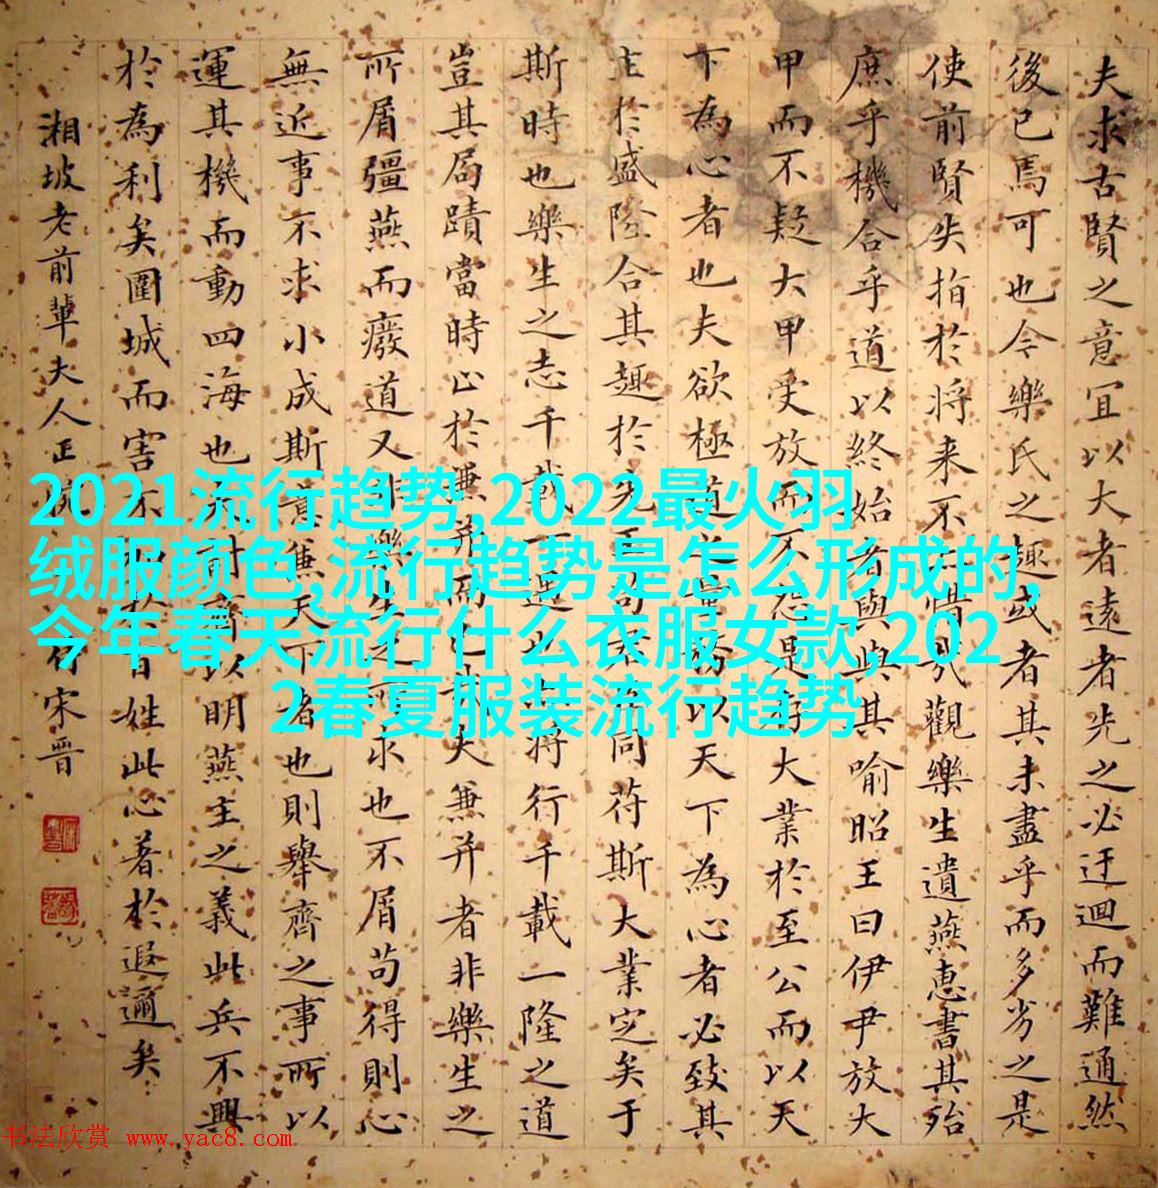 夫求古賢之意宜以大者遠者先之必迂迴而難通然
後已焉可也今樂氏之趣或者其未盡乎而多劣之是
使前賢失指於将来不亦惜哉觀樂生遺燕惠書其殆
庶乎機合乎道以終始者與其喻昭王曰伊尹放大
甲而不疑大甲受放而不怨是存大業於至公而以天
下為心者也夫欲極道之量務以天下為心者必致其
主於盛隆合其趣於先王苟君臣同苻斯大業定矣于
斯時也樂生之志千載一遇也亦將行千載一隆之道
豈其局蹟當時止於兼并而已哉夫兼并者非樂生之
所屑彊燕而廢道又非樂生之所求也不屑苟得則心
無近事不求小成斯意兼天下者也則舉齊之事所以
運其機而動四海也夫討齊以明燕主之義此兵不興
於為利矣圍城而害不加於百姓此心著於遐邇矣
湘坡老前輩夫人正 宋晋
2021流行趋势,2022最火羽
绒服颜色,流行趋势是怎么形成的,
今年春天流行什么衣服女款,202
2春夏服装流行趋势
书法欣赏 www.yac8.com